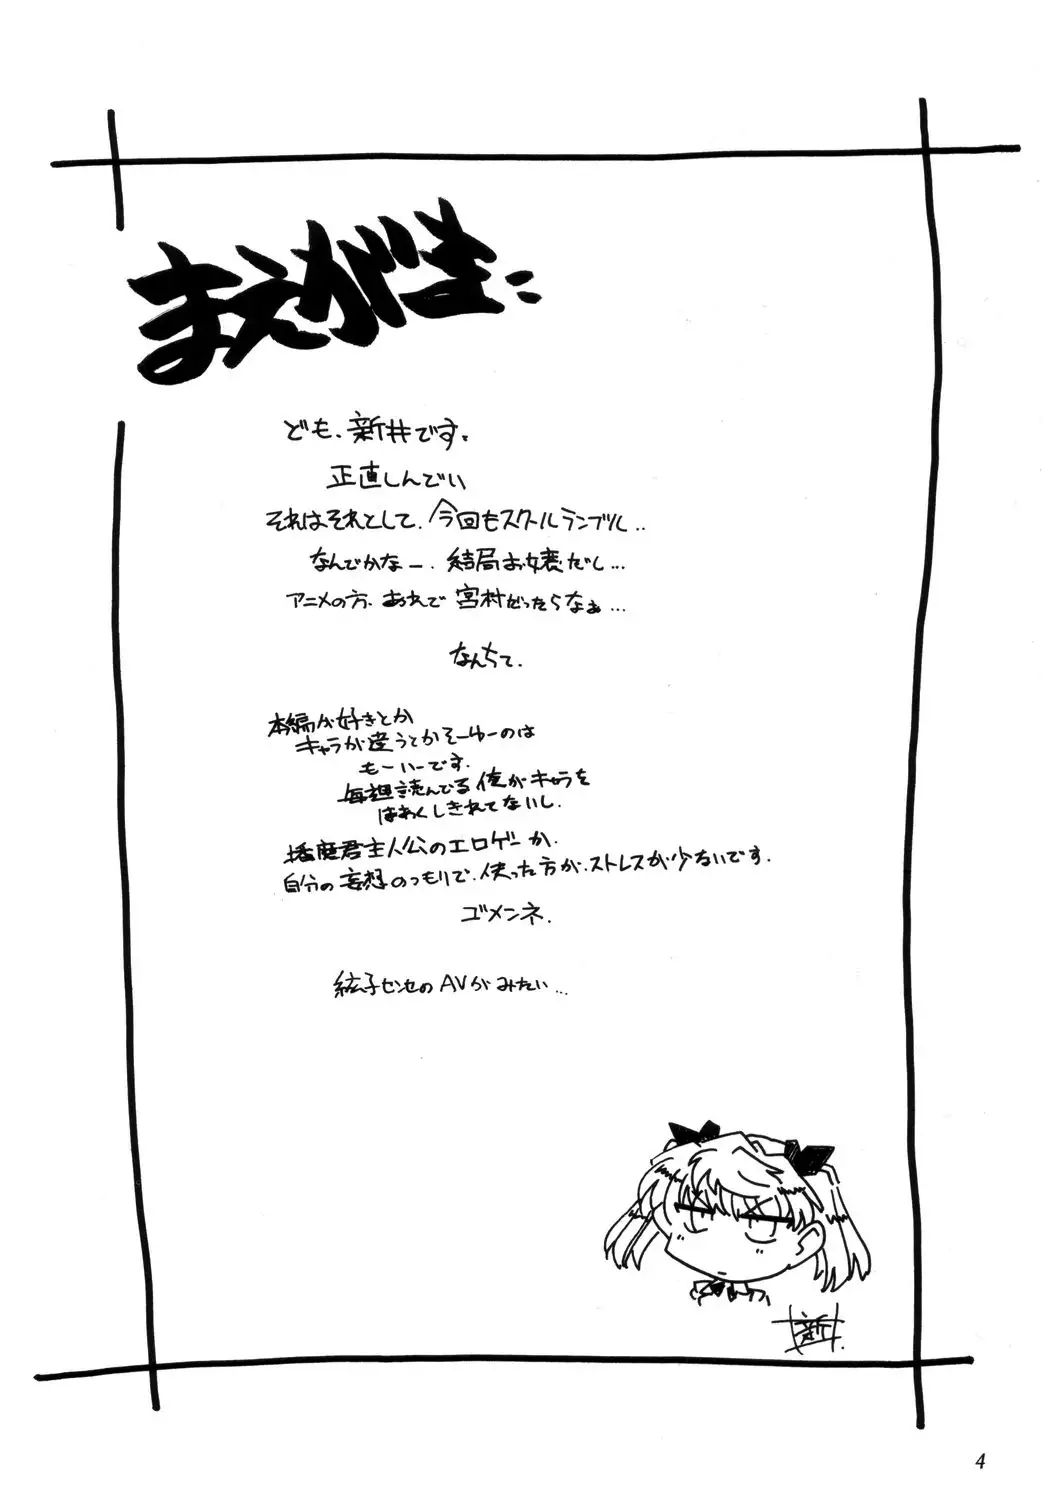 まえがき：
ども、新井です。
正直しんでい
それはそれとして、今回もスクールランブル..
なんでかなー、結局お嬢だし...
アニメの方、あれで宮村だったらなぁ...
なんちて.
本編が好きとか
キャラが違うとかそーゆーのは
もーいーです.
毎週読んでる俺がキャラを
はあくしきれてないし.
播磨君主人公のエロゲーか、
自分の妄想のつもりで、使った方が、ストレスが少ないです.
ゴメンネ.
絃子センセのAVがみたい...
新井.
4